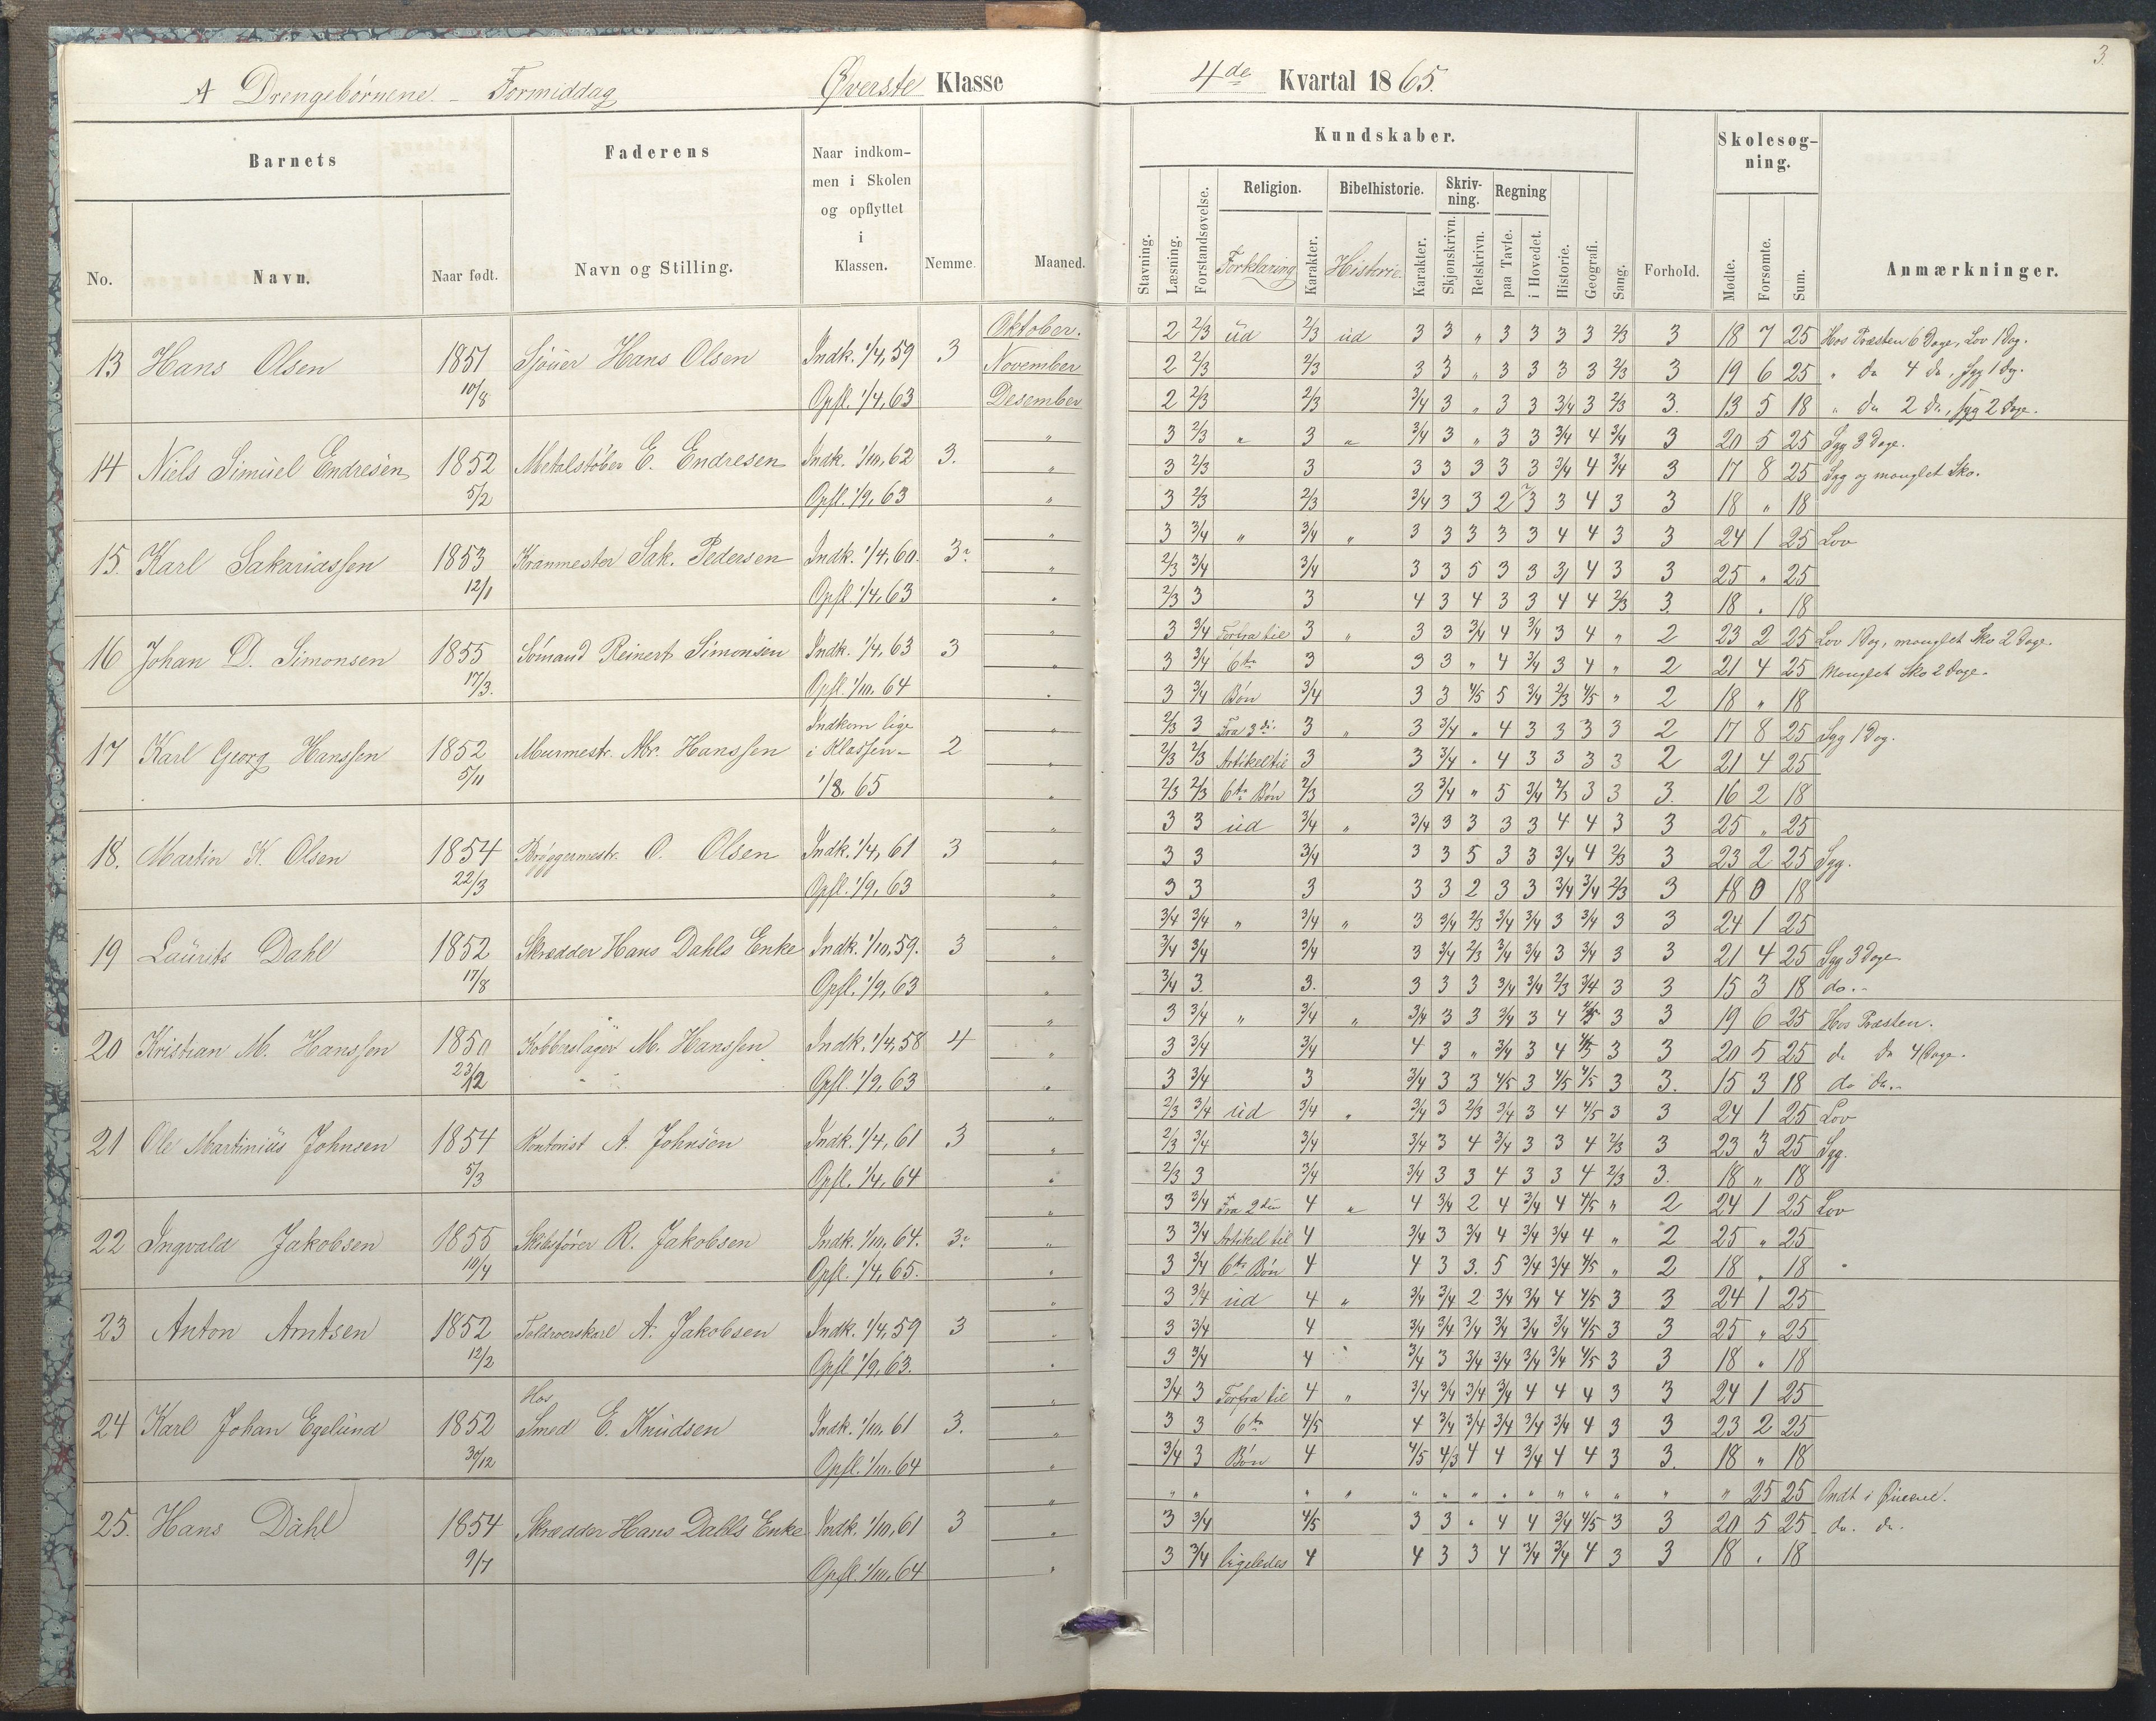 3.
A Drengebørnene - Formiddag Øverste Klasse 4de Kvartal 1865.
Barnets Faderens Naar indkommen i Skolen og opflyttet i Klassen. Nemme. Maaned. Kundskaber. Forhold. Skolesøgning. Anmærkninger.
No. Navn. Naar født. Navn og Stilling.
Stavning. Læsning. Forstandsøvelse. Religion. Forklaring Karakter. Bibelhistorie. Historie Karakter. Skrivning. Skjønskrivn. Retskrivn. Regning paa Tavle. i Hovedet. Historie. Geografi. Sang. Mødte. Forsømte. Sum.
13 Hans Olsen 1851 10/8 Sjouer Hans Olsen Indk. 1/4, 59 Opfl. 1/4, 63 3
Oktober. 2 2/3 ud 2/3 ud 3 3 „ 3 3 3 3 2/3 3 18 7 25 Hos Præsten 6 Dage, Lov 1 Dag.
November 2 2/3 2/3 3 3 „ 3 3 3 3 2/3 3 19 6 25 „ do 4 do, Syg 1 Dg.
Desember 2 2/3 2/3 3/4 3 „ 3 3 3/4 3 2/3 3. 13 5 18 „ do 2 do, syg 2 Dage.
14 Niels Simuel Endresen 1852 5/2 Metalstøber E. Endresen Indk. 1/10, 62 Opfl. 1/9, 63 3.
„ 3 2/3 „ 3 „ 3/4 3 „ 3 3 3/4 4 3/4 3 20 5 25 Syg 3 Dage.
„ 3 2/3 3 3 3 3 3 3 3/4 4 3/4 3 17 8 25 Syg og manglet Sko.
„ 3 2/3 2/3 3/4 3 3 2 2/3 3 4 3 3 18 „ 18
15. Karl Sakariassen 1853 12/1 Kranmester Sak. Pedersen Indk. 1/4, 60. Opfl. 1/4, 63 3.
„ 3 3/4 „ 3/4 „ 3 3 3 3 3 4 4 3 3 24 1 25 Lov
„ 2/3 3/4 3/4 3 3 5 3 3 4 3 3 25 „ 25
„ 2/3 3 3 4 3 4 3 3 4 4 2/3 3. 18 „ 18
16 Johan D. Simonsen 1855 17/3. Sømand Reinert Simonsen Indk. 1/4, 63 Opfl. 1/10. 64 3
„ 3 3/4 Forfra til 3 „ 3 3 3/4 4 3/4 3 4 „ 2 23 2 25 Lov 1 Dag, manglet Sko 2 Dage.
„ 3 3/4 6te 3 3 3 „ 4 3/4 3 4 „ 2 21 4 25 Manglet Sko 2 Dage.
„ 3 3/4 Bøn 3/4 3 3 4/5 5 3/4 2/3 4/5 „ 2 18 „ 18
17 Karl Georg Hanssen 1852 5/11 Murmestr. Hanssen Indkom lige i Klassen- 1/8. 65 2
„ 2/3 3 Fra 3die 3 „ 3 3/4 „ 4 3 3 3 3 2 17 8 25 Syg 1 Dag.
„ 2/3 2/3 Artikel til 3 3 3/4 „ 4 3 3 3 3 2 21 4 25
„ 2/3 2/3 6te Bøn 2/3 3 3/4 „ 5 3/4 2/3 3 3 3. 16 2 18
18. Martin K. Olsen 1854 22/3 Bryggermestr. O. Olsen Indk. 1/4, 61 Opfl. 1/9, 63 3
„ 3 3 ud 3/4 „ 3/4 3 3 3 3 4 4 3 3 25 „ 25
„ 3 3 3/4 3 3 5 3 3 3/4 4 2/3 3 23 2 25 Syg.
„ 3 3 3 3 3 2 3 3 3/4 3/4 2/3 3 18 0 18
19 Laurits Dahl 1852 17/8 Skrædder Hans Dahls Enke Indk. 1/10, 59. Opfl. 1/9, 63 3
„ 3/4 3/4 „ 3/4 „ 3 3/4 2/3 3/4 3/4 3 3/4 3 3 24 1 25
„ 3/4 3/4 3/4 3 3/4 2/3 3/4 3/4 3 3/4 3 3 21 4 25 Syg 3 Dage
„ 3/4 3 3. 3 3 3 3/4 3/4 2/3 3/4 3 3 15 3 18 do.-
20 Kristian M. Hanssen 1850 23/12 Kobberslager M. Hanssen Indk. 1/4, 58 Opfl. 1/9, 63 4
„ 3 3/4 „ 3/4 „ 3/4 3 3 3/4 3 4 4/5 3 3 19 6 25 Hos Præsten.
„ 3 3/4 3/4 4 3 „ 3/4 3 4 4/5 3 3 20 5 25 do do 4 Dage.
„ 3 3/4 3 3/4 3 3 4/5 3 4/5 4/5 3 3. 15 3 18 do do.-
21 Ole Martinius Johnsen 1854 5/3 Kontorist A. Johnsen Indk. 1/4, 61 Opfl. 1/4, 64 3
„ 2/3 3/4 ud 3/4 „ 3/4 3 2/3 3/4 3 4 4/5 3 3 24 1 25 Lov
„ 2/3 3/4 3/4 3/4 3 4 3/4 3 3 4 2/3 3 23 3 25 Syg.
„ 2/3 3 3/4 3/4 3 3 4 3 3 4 2/3 3. 18 „ 18
22 Ingvald Jakobsen 1855 10/4 Skibsfører R. Jakobsen Indk. 1/10. 64. Opfl. 1/4, 65. 3.
„ 3 3/4 Fra 2den 4 „ 4 3/4 2 4 3/4 4 4/5 „ 2 24 1 25 Lov
„ 3 3/4 Artikel til 4 3/4 3 3/4 4 3/4 3/4 4 „ 2 25 „ 25
„ 3 3/4 6te Bøn 4 4 3 3. 5 3/4 3/4 4/5 „ 2 18 „ 18
23 Anton Arntsen 1852 12/2 Toldroerskarl A. Jakobsen Indk. 1/4, 59 Opfl 1/9, 63. 3
„ 3 3/4 ud 4 „ 3/4 3/4 2 3/4 3/4 4 4/5 3 3 24 1 25
„ 3 3/4 4 3/4 3/4 3/4 3/4 3/4 3/4 4/5 3 3 25 „ 25
„ 3 3/4 4 3/4 3 3/4 3/4 3/4 3/4 4/5 3 3 18 „ 18
24 Karl Johan Egelund 1852 30/12 Hos Smed E. Knudsen Indk. 1/10. 61 Opfl. 1/10. 64 3.
„ 3/4 3 Forfra til 4 „ 3/4 3/4 3/4 3/4 4 4 4 3 3 24 1 25
„ 3 3 6te 4/5 4 3/4 3/4 3/4 3/4 3/4 4 3 3 23 2 25
„ 3/4 3 Bøn 4 4/5 4/3 4 4 3/4 4 4 3 3. 18 „ 18
25. Hans Dahl 1854 9/7 Skrædder Hans Dahls Enke Indk. 1/10, 61 Opfl. 1/10. 64 3
„ „ „ „ „ „ „ „ „ „ „ „ „ „ „ 25 25 Ondt i
„ 3 3/4 4/5 3 3 „ 4 4 3/4 4/5 3 3 20 5 25 do. do.
„ 3 3/4 ligeledes 4 4 3 3 4 3/4 3/4 4 3 3 18 „ 18